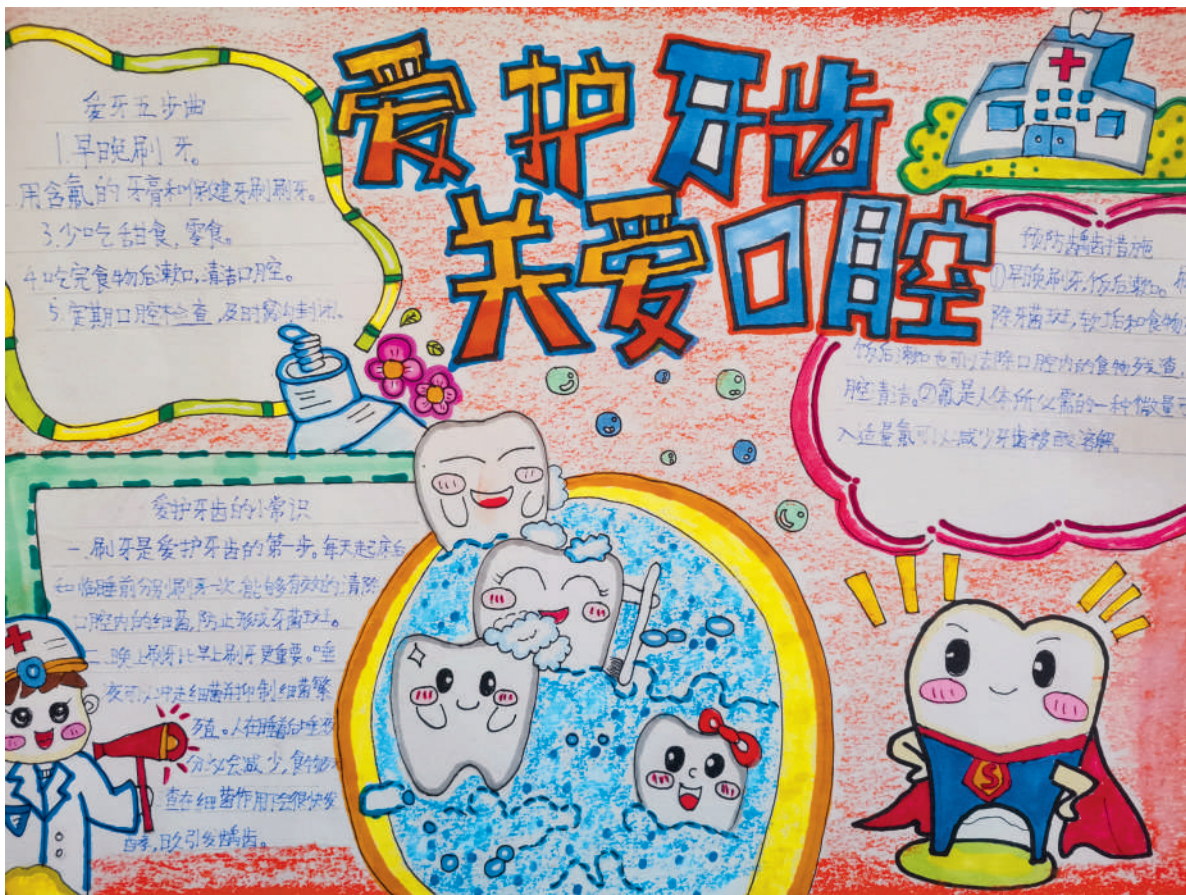 爱护牙齿
关爱口腔
爱牙五步曲
1.早晚刷牙。
用含氟的牙膏和保建牙刷刷牙。
3.少吃甜食,零食。
4.吃完食物后漱口,清洁口腔。
5.定期口腔检查,及时窝沟封闭。
预防龋齿措施
①早晚刷牙,饭后漱口。
除牙菌斑,软垢和食物
饭后漱口也可以去除口腔内的食物残渣,
腔清洁。②氟是人体所必需的一种微量
入适量氟可以减少牙齿被酸溶解。
爱护牙齿的小常识
一.刷牙是爱护牙齿的第一步。每天起床后
和临睡前分别刷牙一次,能够有效的清除
口腔内的细菌,防止形成牙菌斑。
二、晚上刷牙比早上刷牙更重要。唾
液可以冲走细菌并抑制细菌繁
殖。人在睡着后唾液
分泌会减少,食物
查在细菌作用下会很快发
酵,日久引发龋齿。
S